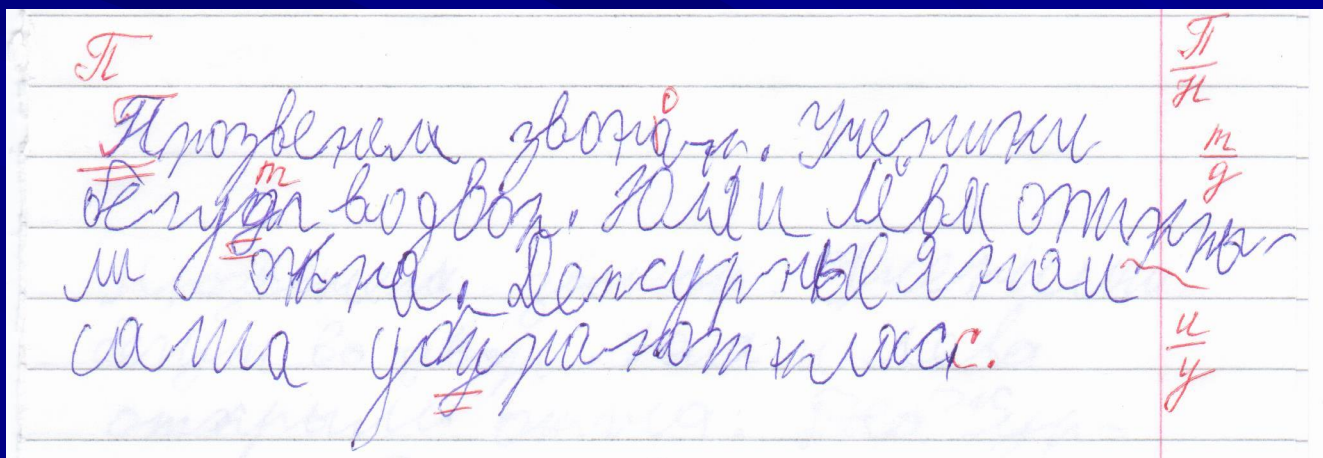 П
Прозвенел звонок. Ученики
бегуд водвор. Юля и Лёва откры-
ли окна. Дежурные яна и
саша убурают класс.
П
Н
т
д
и
у